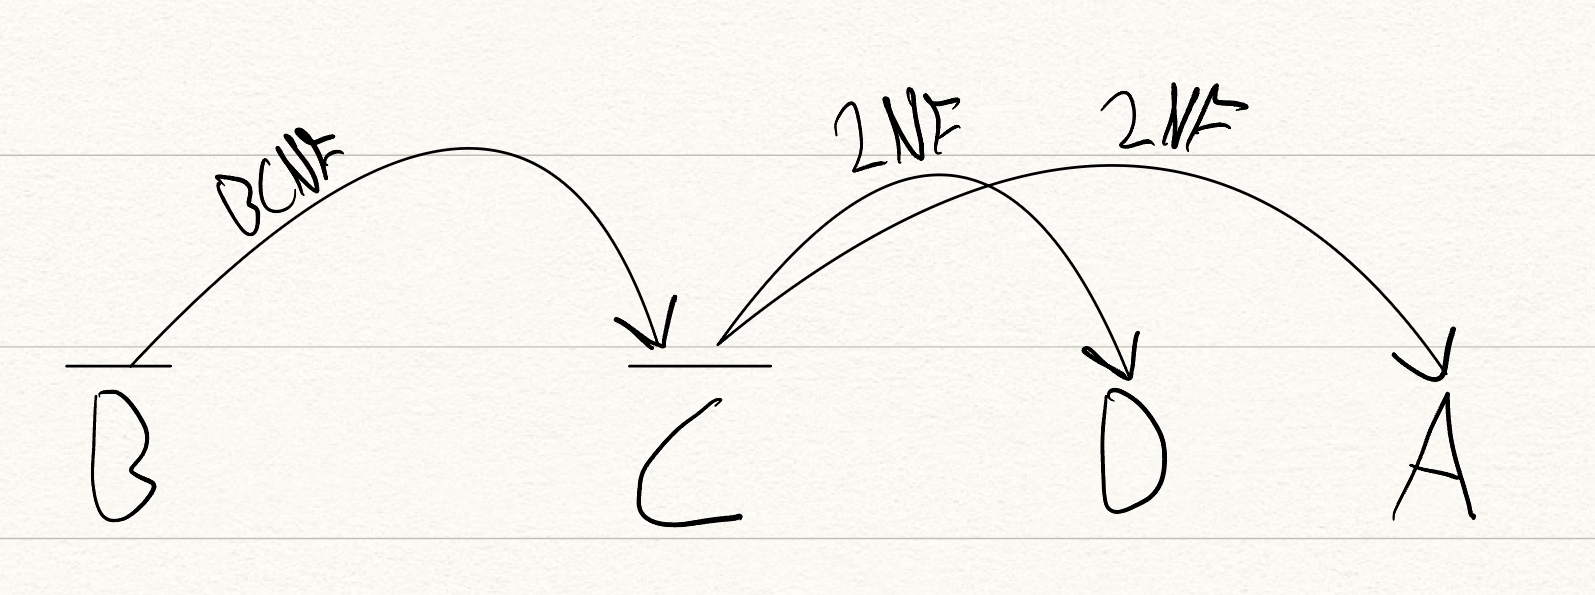 BCNF 2NF 2NF
B C D A